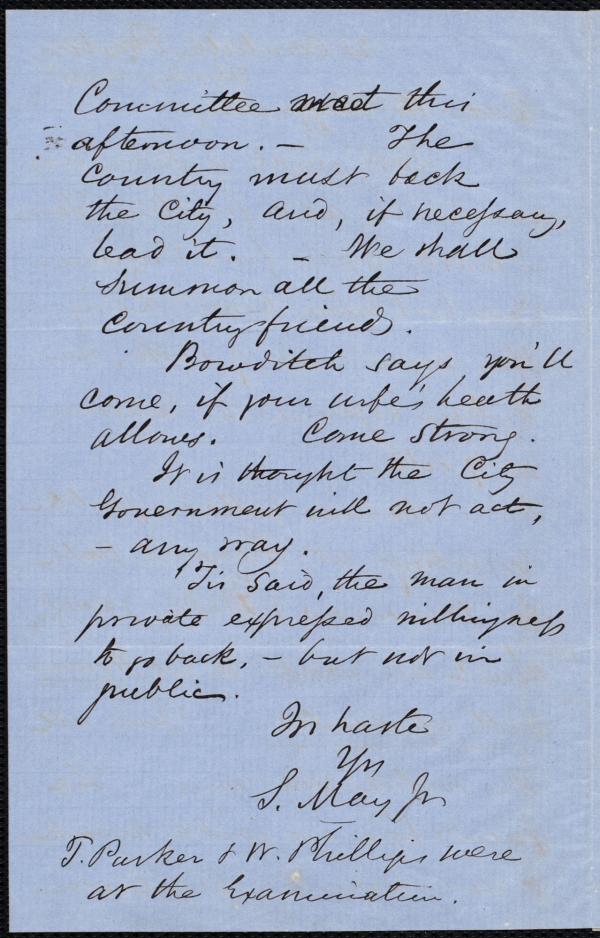 Committee meet this
afternoon. — The
Country must back
the City, and, if necessary,
lead it. — We shall
summon all the
country friends.
Bowditch says you'll
come, if your wife's health
allows. Come strong.
It is thought the City
Government will not act,
— any way.
'Tis said, the man in
private expressed willingness
to go back, — but not in
public.
In haste
Yrs
S. May Jr
T. Parker & W. Phillips were
at the Examination.